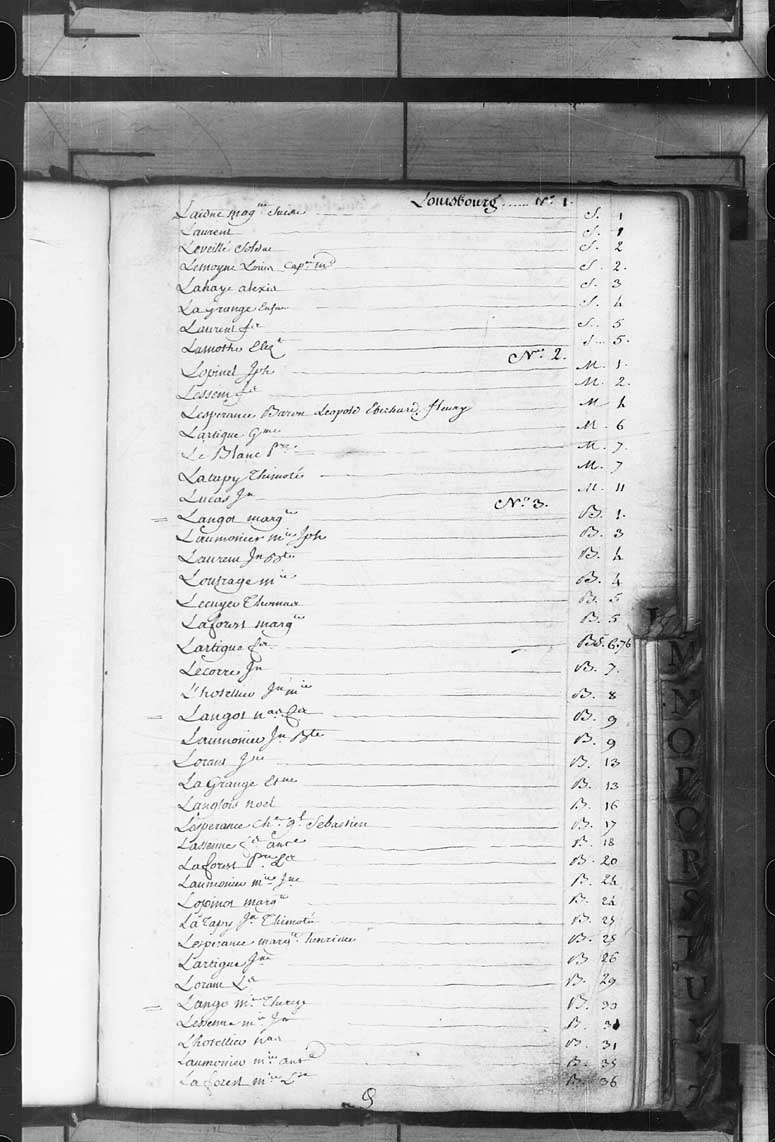 Louisbourg ...... N.º 1.
Laisne mag.ne S. 1
Laurent S. 1
Loveillé S. 2
Lemoyne Louis Cap.ne S. 2.
Lahaye alexis S. 3
La Grange S. 4
Laurent S. 5
Lamothe Eliz.t S. 5.
N.º 2.
Lopinet Jph M. 1.
Lessenne M. 2.
Lesperance Baron Leopold Eberhard fleury M 4
Lartigue G.me M. 6
Le Blanc P.re M. 7.
Latapy Thimoté M. 7
Lucas Jn M. 11
N.º 3.
Langot marg.te B. 1.
Laumonier m.ie Jph B. 3
Laurent Jn Bte B. 4
Loustage m.ie B. 4
Lecuyer Thomas B. 5
Laforest marg.te B. 5
Lartigue B.
Lecorre Jn B. 7.
L'hotellier Jn m.ie B. 8
Langot B. 9
Laumonier Jn Bte B. 9
Lorant Jne B. 13
La Grange Et.ne B. 13
Langlois noel B. 16
Lesperance Ch. Sebastien B. 17
Lassenne B. 18
Laforest P.re B. 20
Laumonier m.ie Jne B. 24
Lopinot marg.te B. 24
La Tapy Jn Thimoté B. 25
Lesperance marg.te henriette B. 25
Lartigue Jne B 26
Lorant B. 29
Lango m.ie Therese B. 30
Lessenne m.ie Jne B. 31
L'hotellier B. 31
Laumonier m.ie B. 35
La forest m.ie B. 36
L
M
N
O
P
Q
R
S
T
U